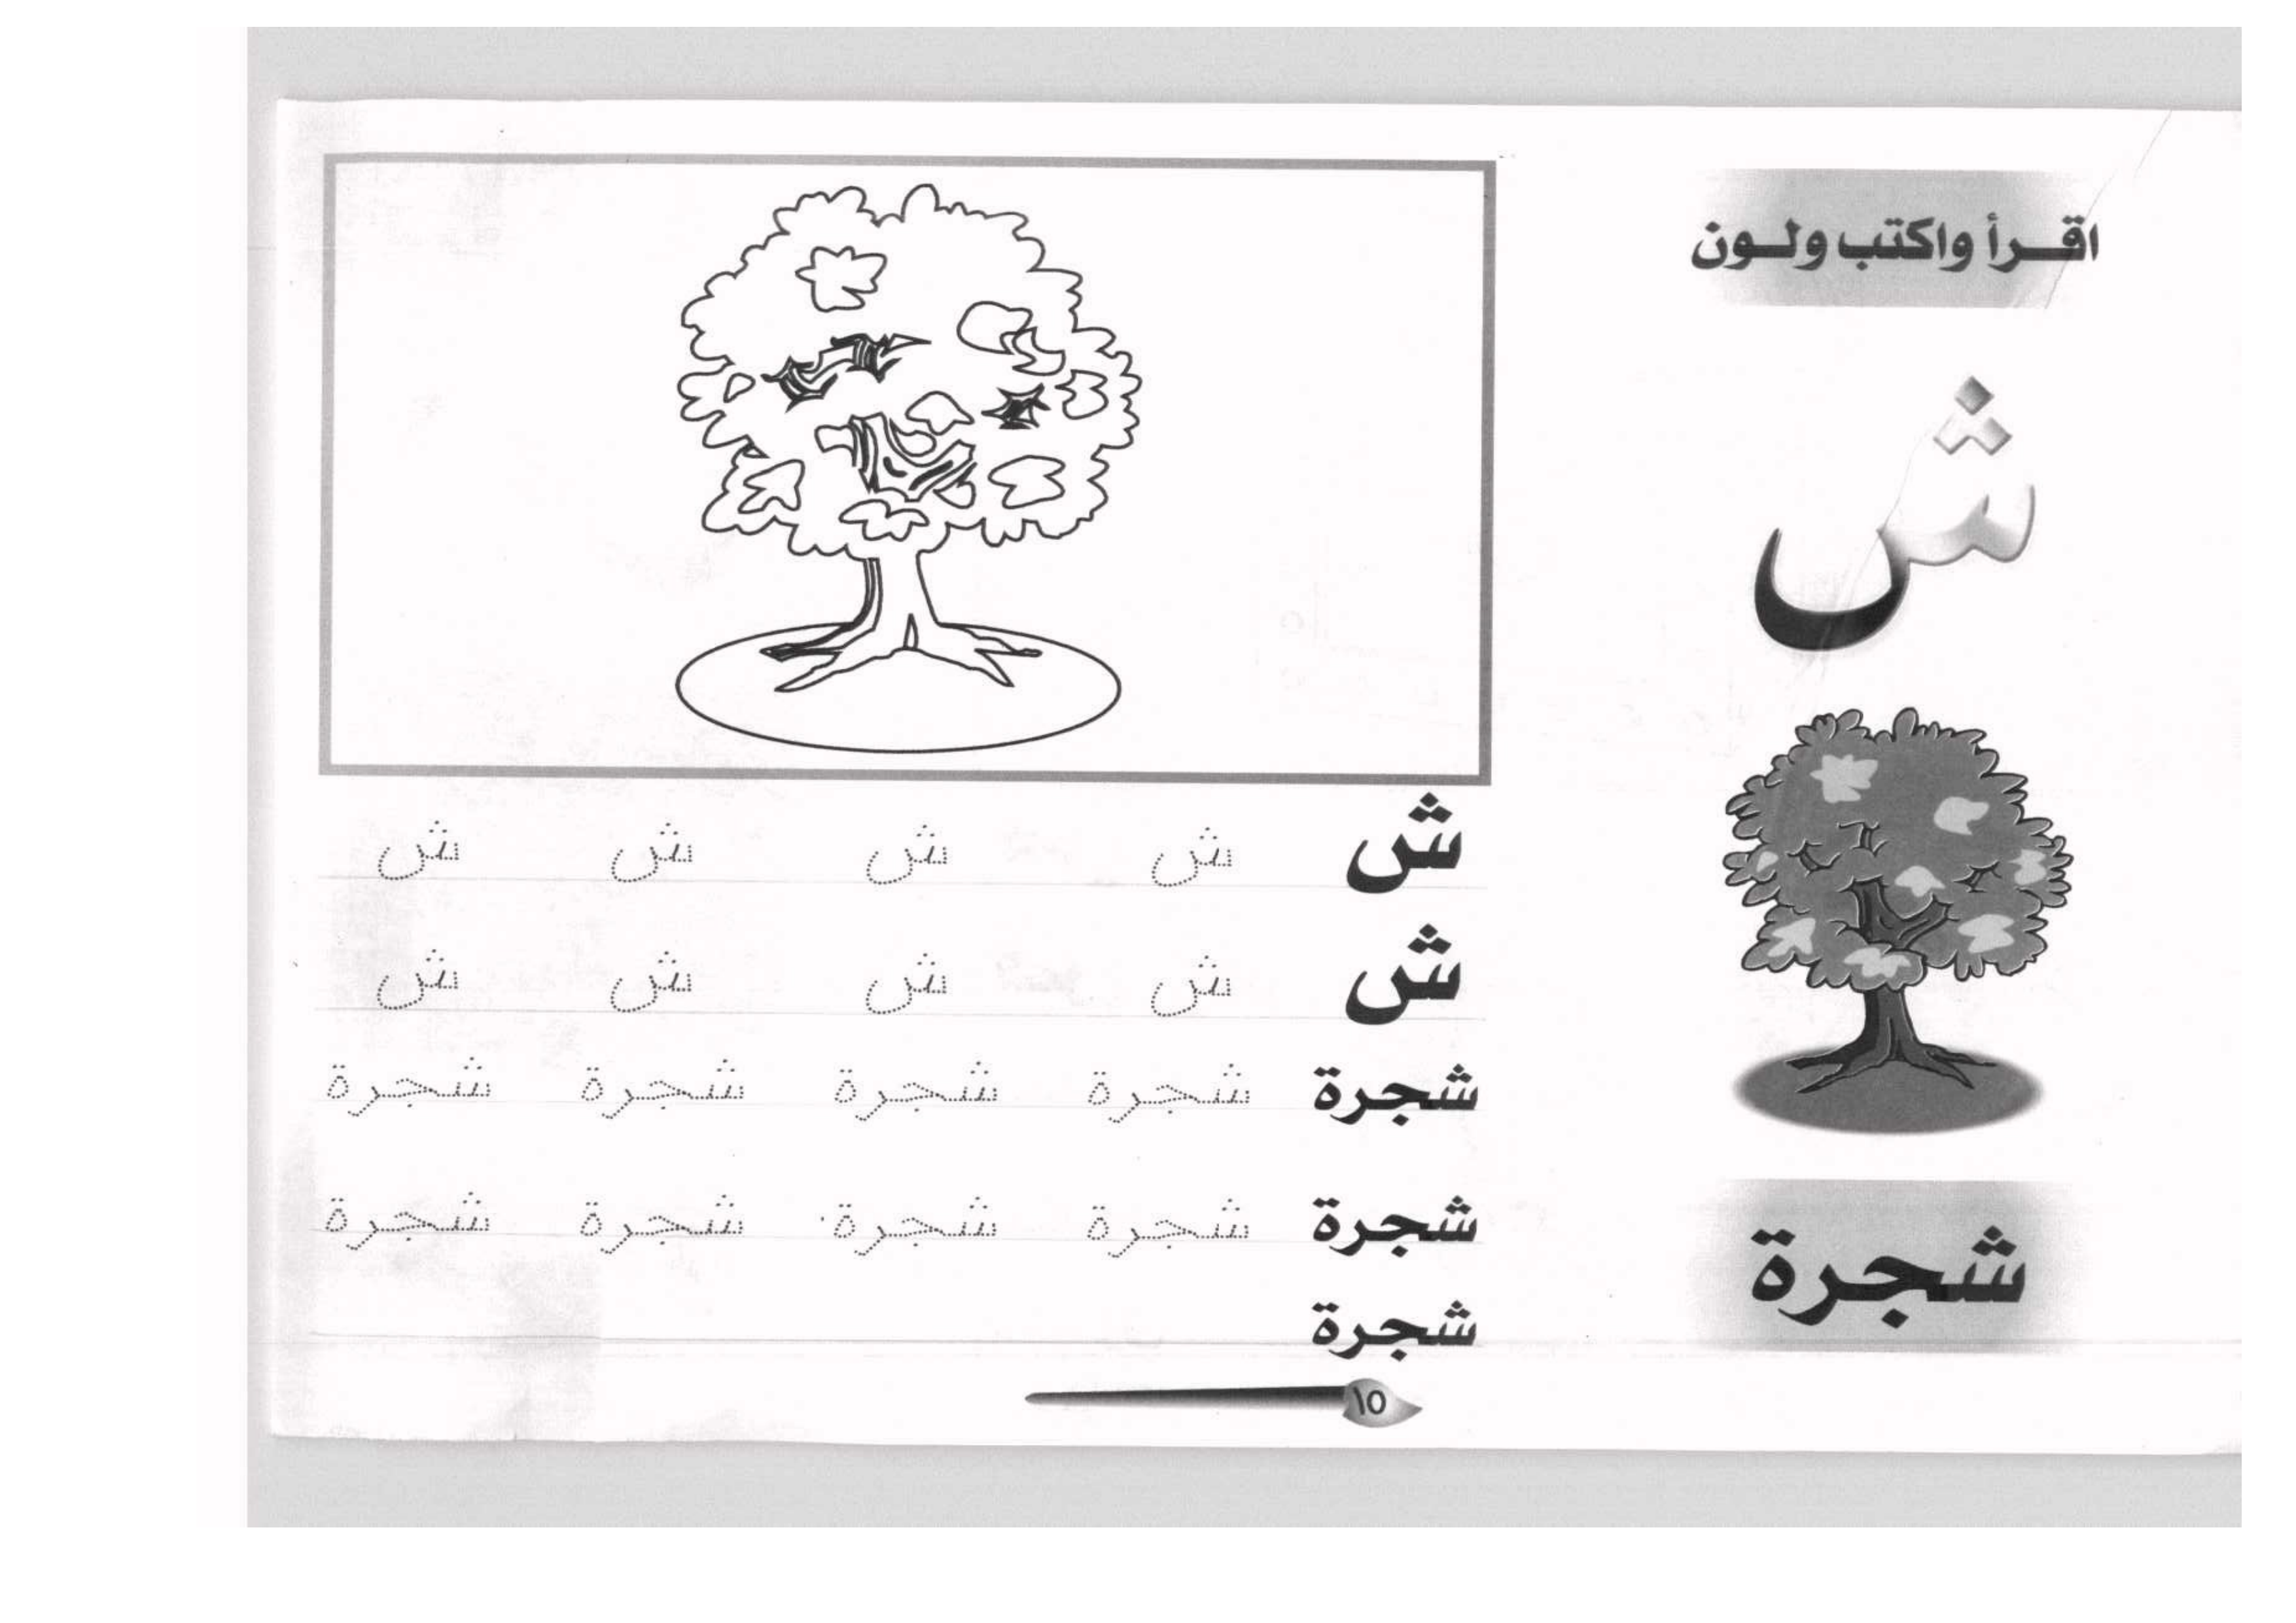 اقرأ واكتب ولون
ش
شجرة
ش ش ش ش ش
ش ش ش ش ش
شجرة شجرة شجرة شجرة شجرة
شجرة شجرة شجرة شجرة شجرة
شجرة
١٥